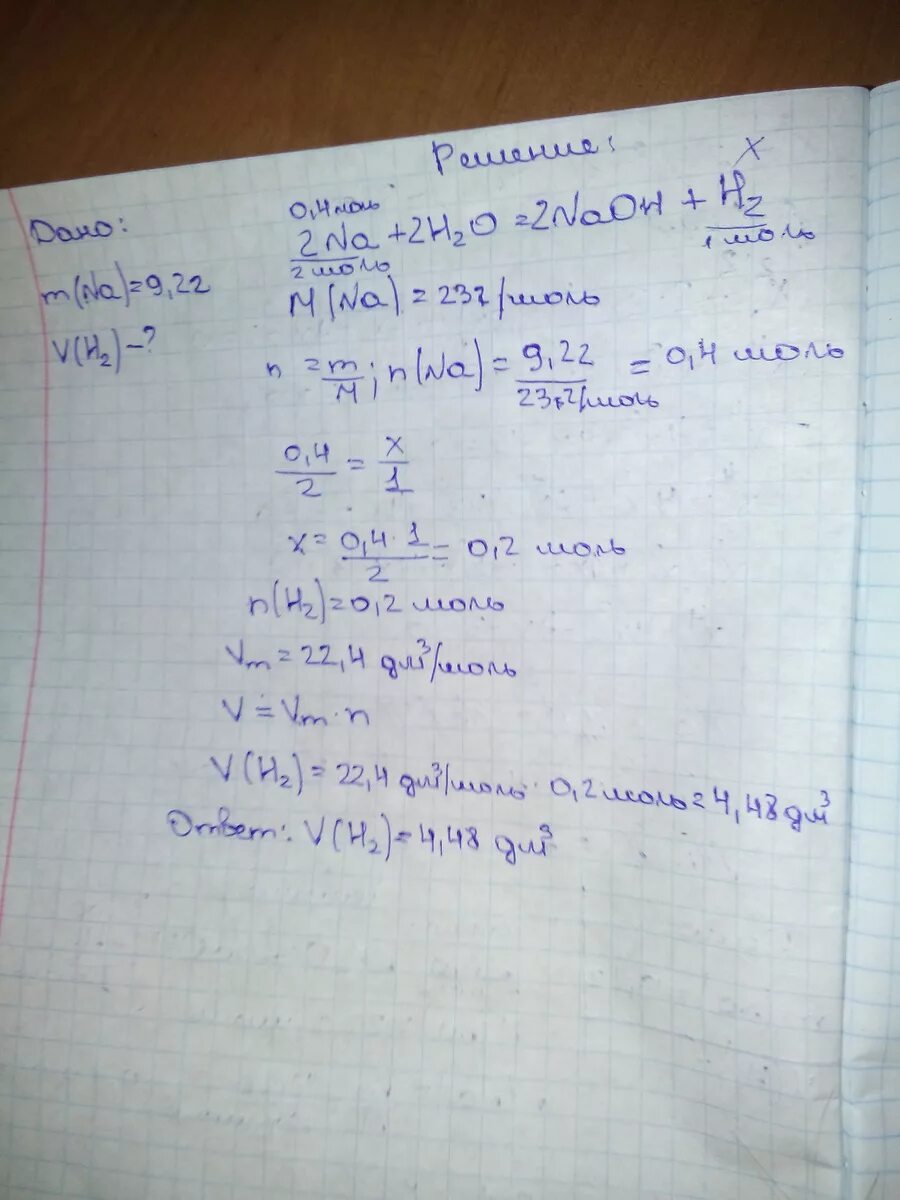 Решение:
Дано:
m(Na)=9,2г
V(H₂)-?
0,4 моль x
2Na + 2H₂O = 2NaOH + H₂
2 моль 1 моль
M(Na) = 23г/моль
n = m/M; n(Na) = 9,2г/23г/моль = 0,4 моль
0,4/2 = x/1
x = 0,4·1/2 = 0,2 моль
n(H₂)=0,2 моль
Vm = 22,4 дм³/моль
V = Vm·n
V(H₂) = 22,4 дм³/моль · 0,2 моль = 4,48 дм³
Ответ: V(H₂)=4,48 дм³